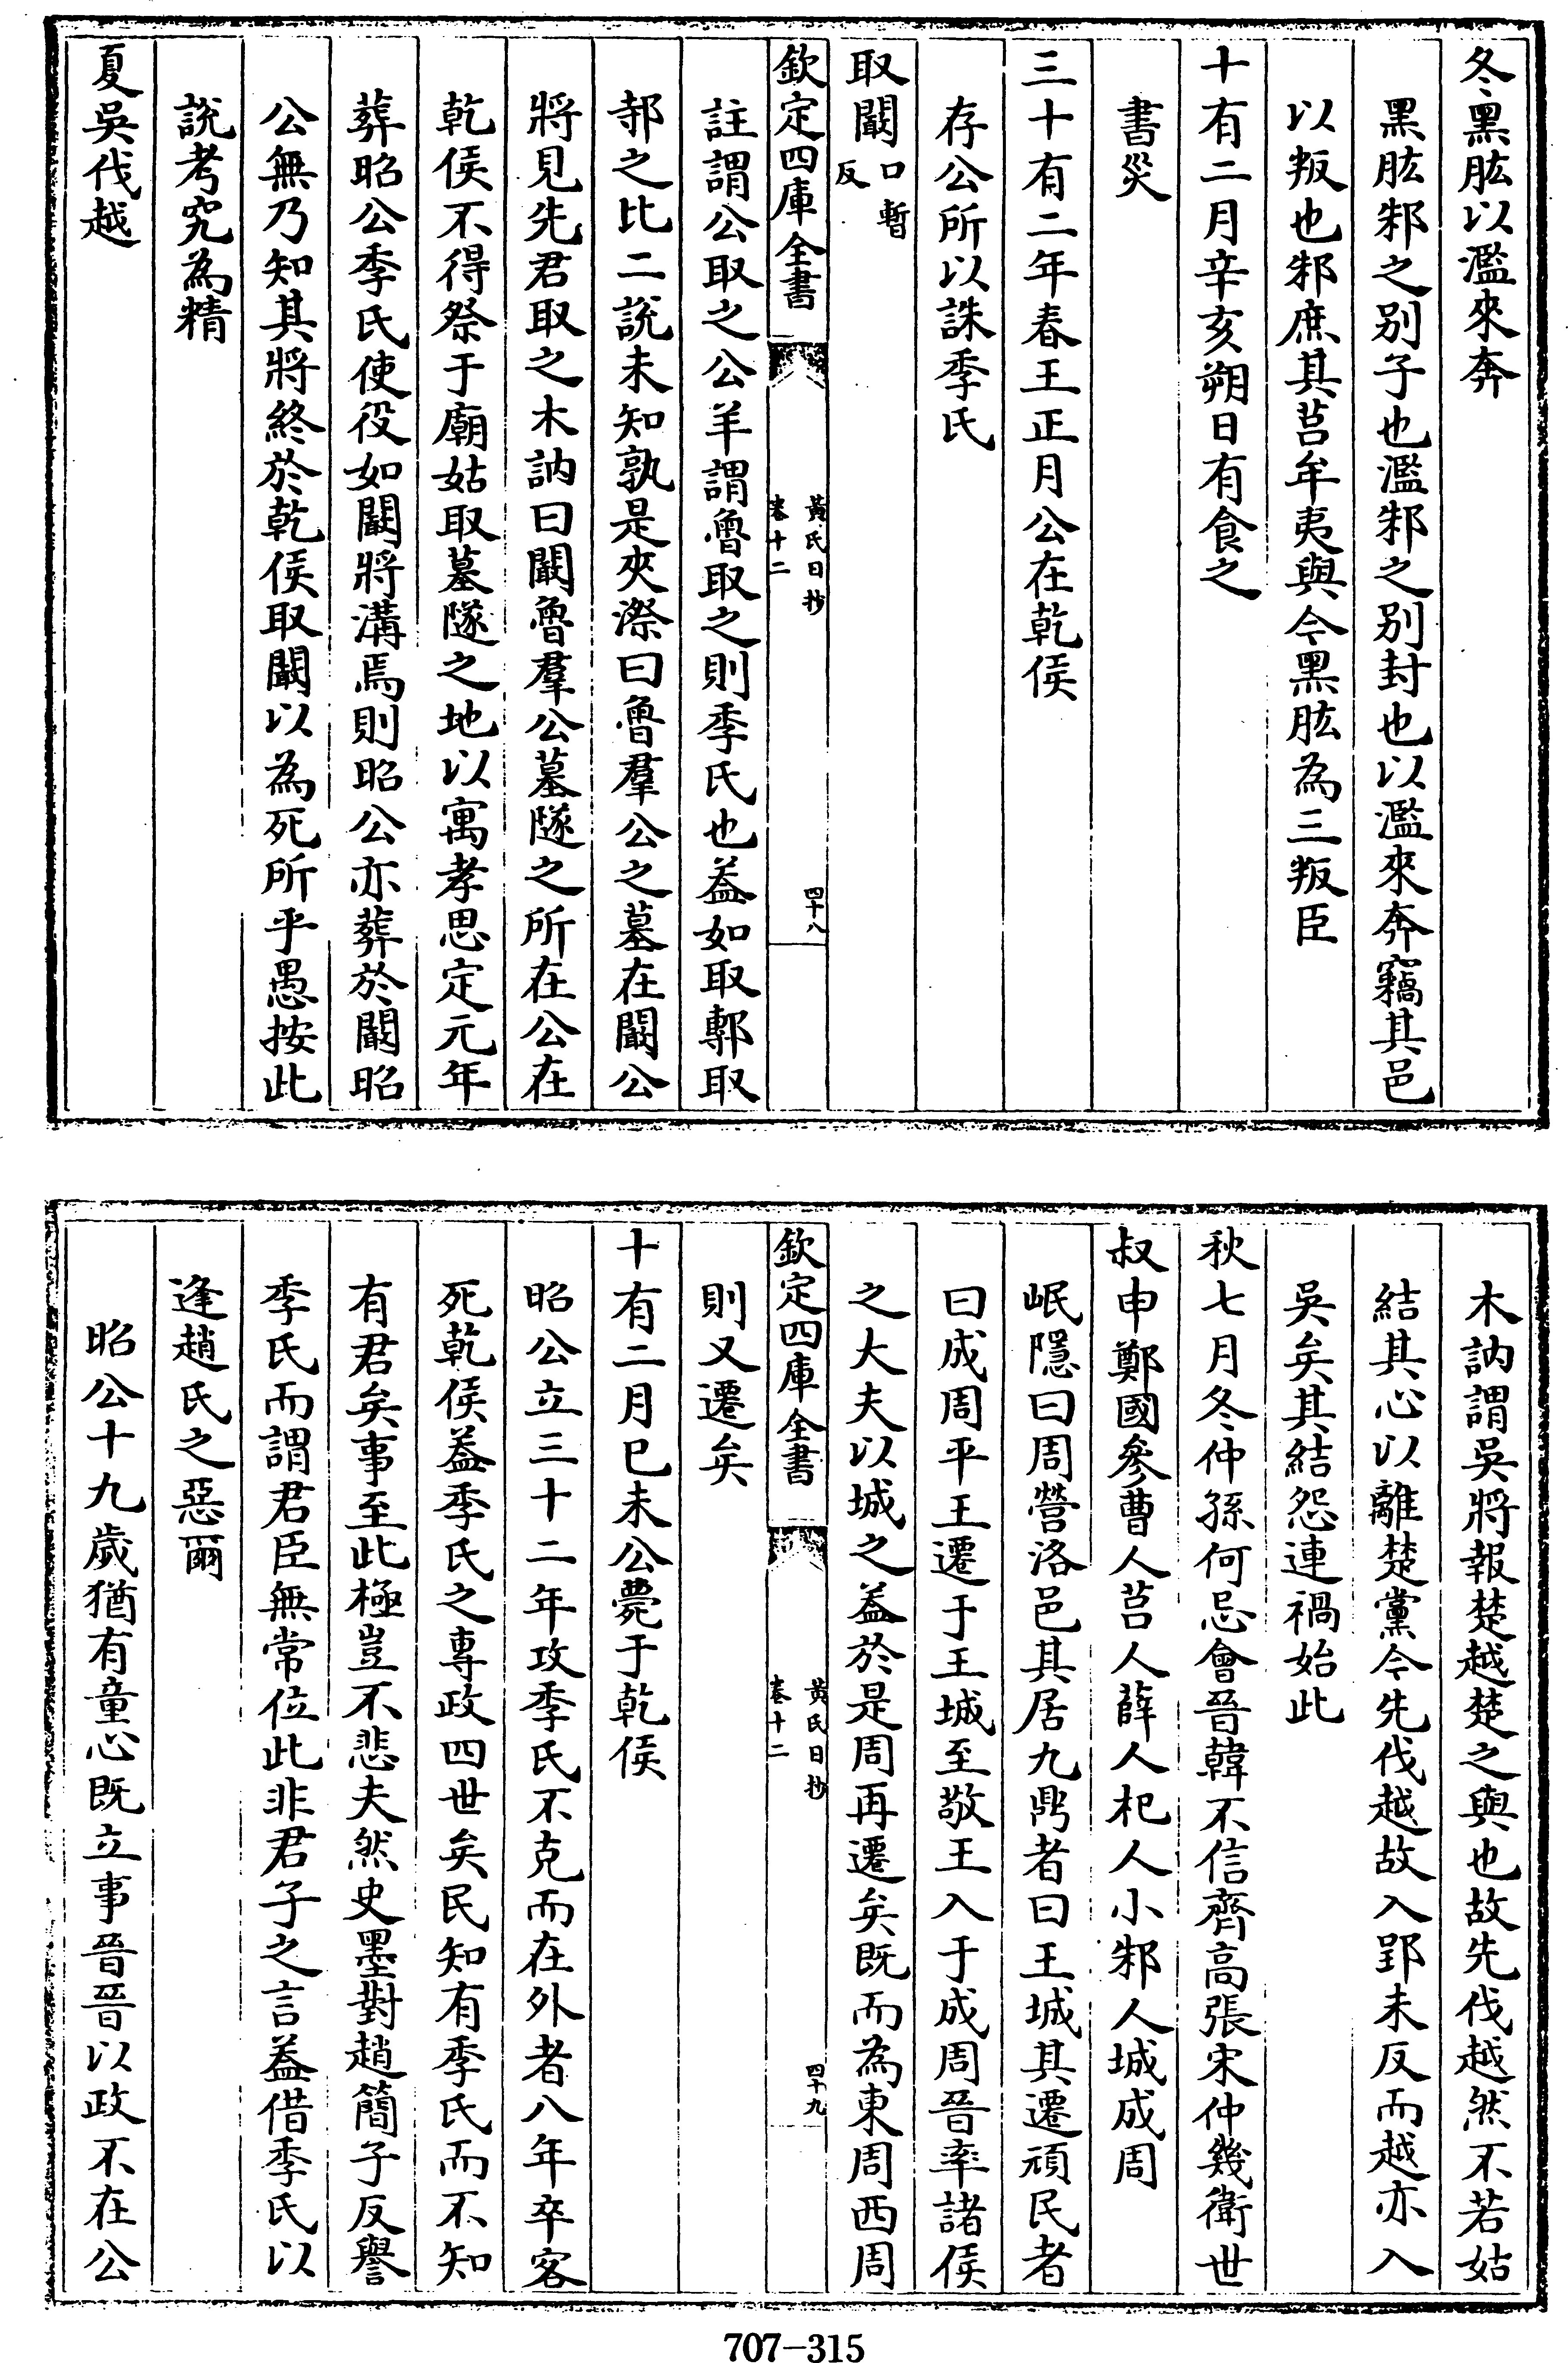 冬黑肱以濫來奔
黑肱邾之別子也濫邾之別封也以濫來奔竊其邑
以叛也邾庶其莒牟夷與今黑肱為三叛臣
十有二月辛亥朔日有食之
書災
三十有二年春王正月公在乾侯
存公所以誅季氏
取闞口暫反
欽定四庫全書 黃氏日抄 卷十二 四十八
註謂公取之公羊謂魯取之則季氏也葢如取鄆取
邿之比二說未知孰是夾漈曰魯羣公之墓在闞公
將見先君取之木訥曰闞魯羣公墓隧之所在公在
乾侯不得祭于廟姑取墓隧之地以寓孝思定元年
葬昭公季氏使役如闞將溝焉則昭公亦葬於闞昭
公無乃知其將終於乾侯取闞以為死所乎愚按此
說考究為精
夏吳伐越
木訥謂吳將報楚越楚之與也故先伐越然不若姑
結其心以離楚黨今先伐越故入郢未反而越亦入
吳矣其結怨連禍始此
秋七月冬仲孫何忌會晉韓不信齊高張宋仲幾衛世
叔申鄭國參曹人莒人薛人杞人小邾人城成周
岷隱曰周營洛邑其居九鼎者曰王城其遷頑民者
曰成周平王遷于王城至敬王入于成周晉率諸侯
之大夫以城之葢於是周再遷矣既而為東周西周
欽定四庫全書 黃氏日抄 卷十二 四十九
則又遷矣
十有二月已未公薨于乾侯
昭公立三十二年攻季氏不克而在外者八年卒客
死乾侯葢季氏之專政四世矣民知有季氏而不知
有君矣事至此極豈不悲夫然史墨對趙簡子反譽
季氏而謂君臣無常位此非君子之言葢借季氏以
逢趙氏之惡爾
昭公十九歲猶有童心既立事晉晉以政不在公
707-315